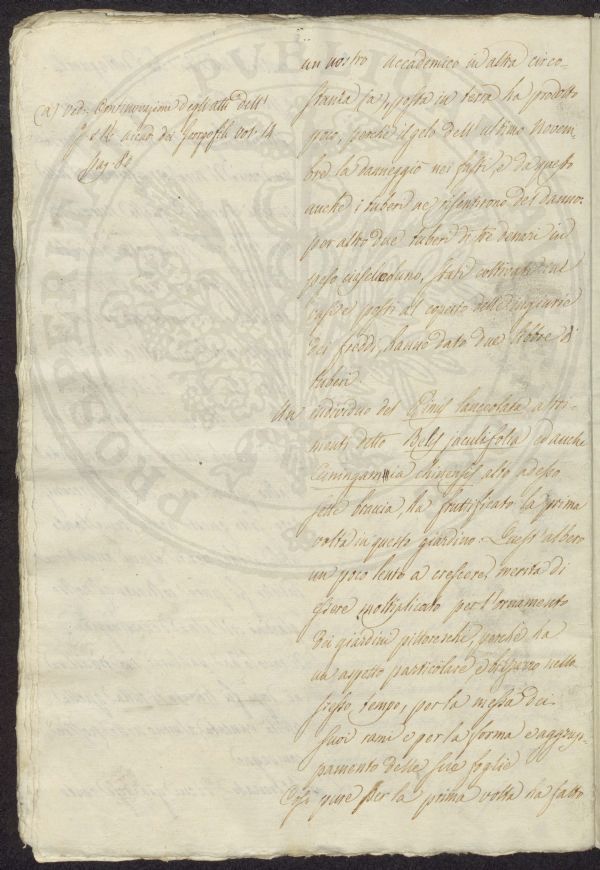 (a) Ved. Continuazione degli atti dell'
I. e R. Accad. dei Georgofili vol. 14
pag. 80
un nostro Accademico in altra circo-
stanza (a), posta in terra ha prodotto
poco, perchè il gelo dell'ultimo Novem-
bre la danneggiò nei fusti, e da questo
anche i tuberi ne risentirono del danno:
per altro due tuberi di tre denari in
peso ciascheduno, stati coltivati in
vasi e posti al coperto delle ingiurie
dei freddi, hanno dato due libbre di
tuberi.
Un individuo del Pinus lanceolata altri-
menti detto Belis jaculifolia ed anche
Cuningamia chinensis, alto adesso
sette braccia, ha fruttificato la prima
volta in questo giardino. Quest'albero
un poco lento a crescere, merita di
essere moltiplicato per l'ornamento
dei giardini pittoreschi, perchè ha
un aspetto particolare, e bizzarro nello
stesso tempo, per la messa dei
suoi rami e per la forma e aggrup-
pamento delle sue foglie
Così pure per la prima volta ha fatto
PUBLICA
PROSPERITA